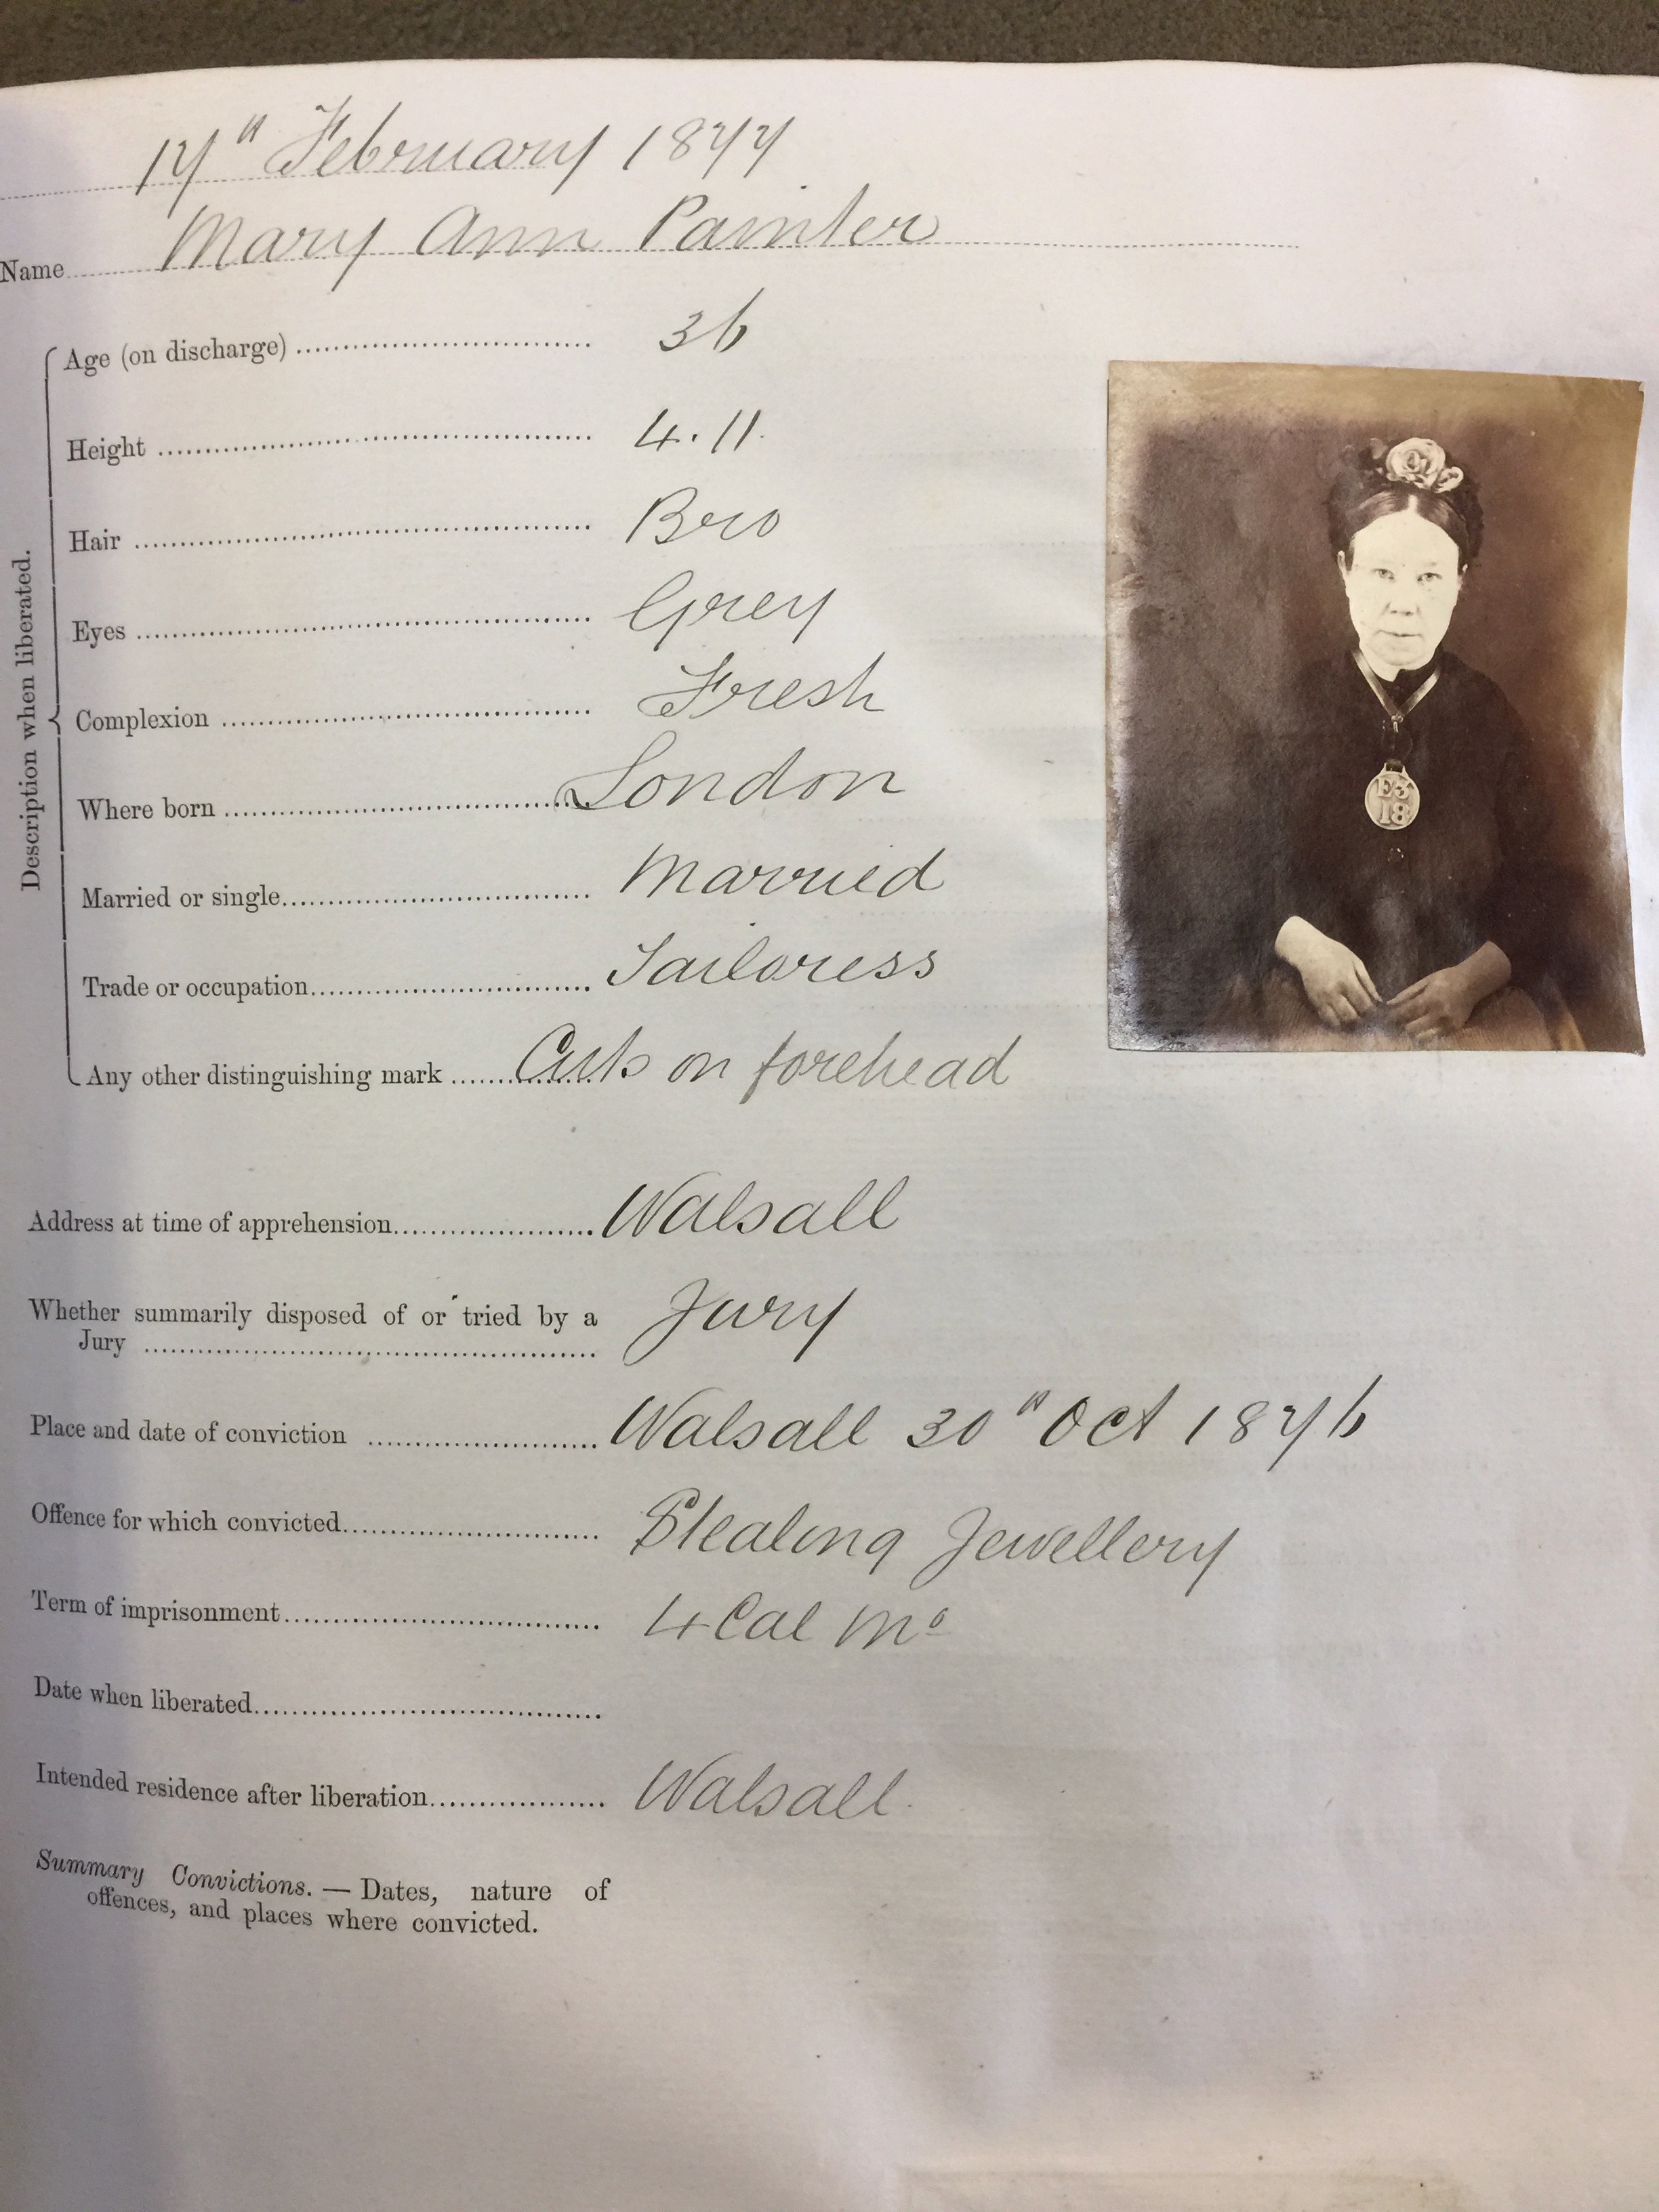 17th February 1877
Name Mary Ann Painter
Description when liberated.
Age (on discharge) 36
Height 4.11.
Hair Bro
Eyes Grey
Complexion Fresh
Where born London
Married or single Married
Trade or occupation Tailoress
Any other distinguishing mark Cuts on forehead
E3
18
Address at time of apprehension Walsall
Whether summarily disposed of or tried by a
Jury Jury
Place and date of conviction Walsall 30th Oct 1876
Offence for which convicted Stealing Jewellery
Term of imprisonment 4 Cal Mo
Date when liberated
Intended residence after liberation Walsall.
Summary Convictions. — Dates, nature of
offences, and places where convicted.